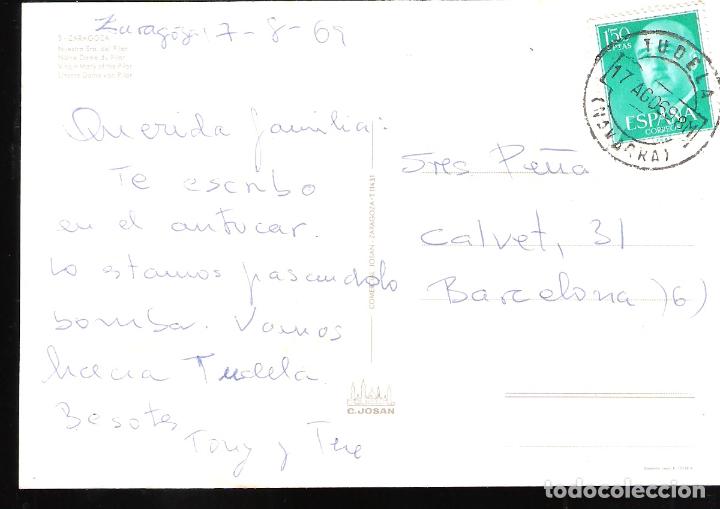 Zaragoza 17-8-69
3 - ZARAGOZA
Nuestra Sra. del Pilar
Nôtre Dame du Pilar
Virgin Mary of the Pilar
Unsere Dame von Pilar
Querida familia:
Te escribo
en el autocar.
Lo estamos pasandolo
bomba. Vamos
hacia Tudela.
Besotes
Tony y Tere
COMERCIAL JOSAN - ZARAGOZA
C. JOSAN
1'50
PTAS
ESPAÑA
CORREOS
TUDELA
17 AGO 69
(NAVARRA)
Sres Peña
Calvet, 31
Barcelona )6)
todocoleccion.net